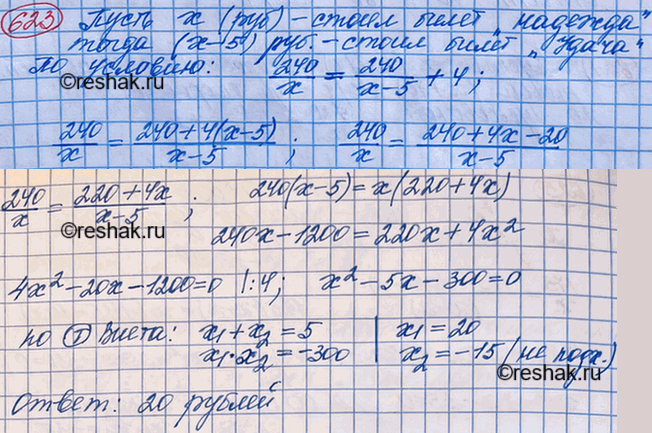 623 Пусть x (руб) - стоил билет "надежда"
тогда (x-15) руб. - стоил билет "Удача"
По условию: 240/x = 240/(x-5) + 4;
©reshak.ru
240/x = (240+4(x-5))/(x-5); 240/x = (240+4x-20)/(x-5)
240/x = (220+4x)/(x-5); 240(x-5) = x(220+4x)
©reshak.ru
240x-1200=220x+4x²
4x²-20x-1200=0 |:4; x²-5x-300=0
по Т Виета: x1+x2=5 | x1=20
x1·x2=-300 | x2=-15 (не подх.)
©reshak.ru
Ответ: 20 рублей